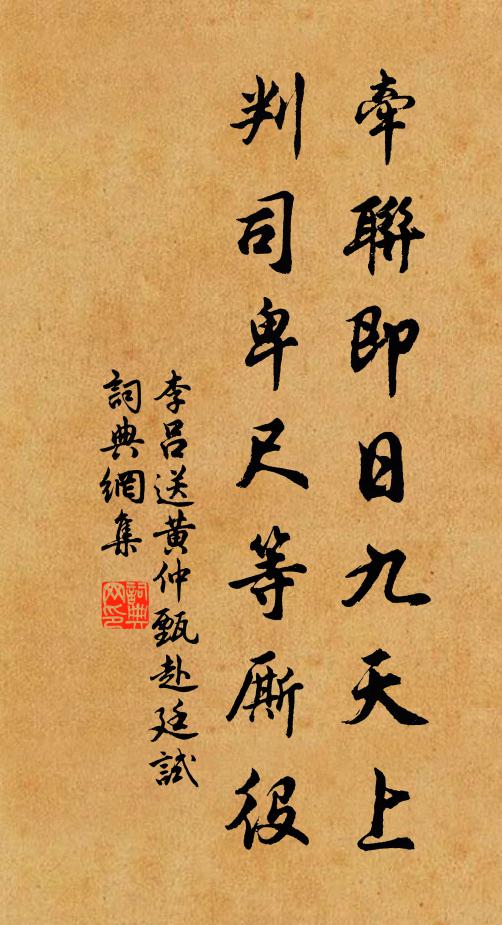 牽聯即日九天上
判司卑尺等厮役
李呂送黄仲甄赴廷試
詞典網集
詞典
网印